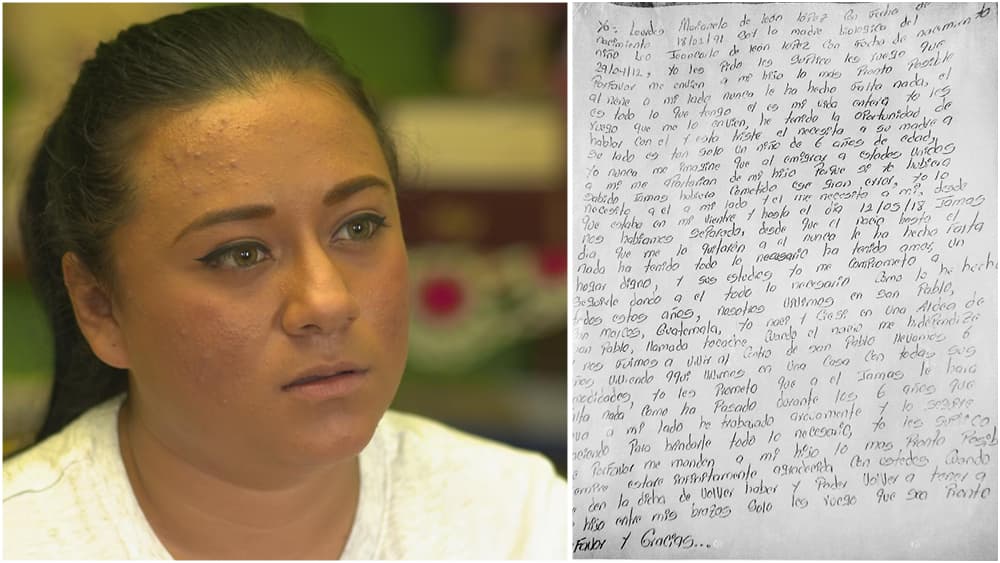 Yo: Lourdes Marianela de león lópez Con Fecha de
nacimiento 18/02/91 soy la madre biologica del
niño Leo Jeancarlo de león lópez con fecha de nacimiento
29/04/12, yo les Pido les suplico les ruego que
Porfavor me envien a mi hijo lo mas Pronto Posible
al nene a mi lado nunca le ha hecho falta nada, el
es todo lo que tengo el es mi vida entera yo les
ruego que me lo envien, he tenido la oportunidad de
hablar con el y esta triste el necesita a su madre a
su lado es tan solo un niño de 6 años de edad,
yo nunca me imagine que al emigrar a estados unidos
a mi me apartarian de mi hijo Porque si lo hubiera
sabido Jamas hubiera Cometido ese gran error, yo lo
necesito a el a mi lado y el me necesita a mi, desde
que estaba en mi vientre y hasta el día 12/05/18 Jamas
nos habiamos separado, desde que el nacio hasta el
dia que me lo quitarón a el nunca le ha hecho Falta
nada ha tenido todo lo necesario ha tenido amor, un
hogar digno, y sus estudos yo me comprometo a
seguirle dando a el todo lo necesario Como lo he hecho
todos estos años, nosotros vivimos en San Pablo,
San Marcos, Guatemala, yo naci y Creci en una Aldea de
San Pablo, llamado tocache, Cuando el nacio me Independize
nos fuimos a vivir al Centro de san Pablo llevamos 6
años viviendo aqui vivimos en una Casa con todas sus
modidades, yo les Prometo que a el Jamas le hara
falta nada, Como ha Pasado durante los 6 años que
lleva a mi lado he trabajado arduamente y lo seguire
haciendo Para brindarle todo lo necesario, yo les suplico
Porfavor me manden a mi hijo lo mas Pronto Posible
siempre estare infinitamente agradecida Con ustedes Cuando
den la dicha de volver haber y Poder volver a tener a
hijo entre mis brazos solo les ruego que sea Pronto
Favor y Gracias...